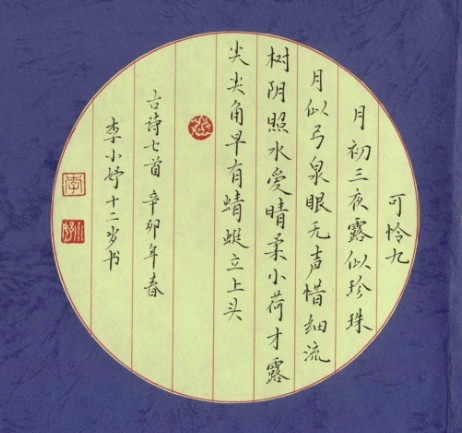 可怜九
月初三夜露似珍珠
月似弓泉眼无声惜细流
树阴照水愛晴柔小荷才露
尖尖角早有蜻蜓立上头
古诗七首 辛卯年春
李小妤十二岁书
李